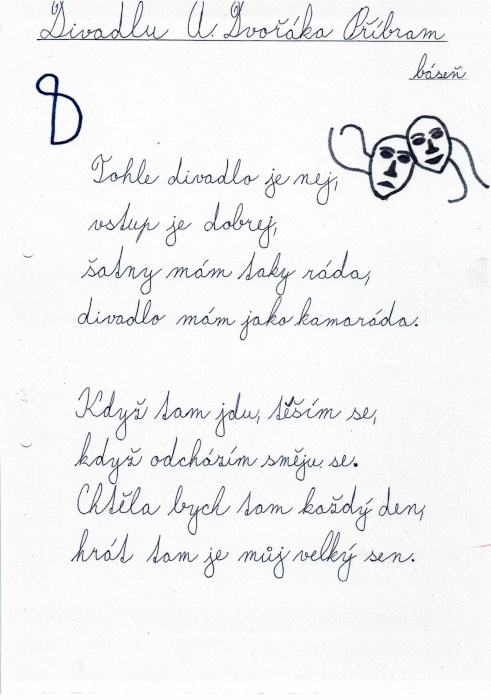 Divadlu A. Dvořáka Příbram
báseň
Tohle divadlo je nej,
vstup je dobrej,
šatny mám taky ráda,
divadlo mám jako kamaráda.
Když tam jdu, těším se,
když odcházím směju se.
Chtěla bych tam každý den,
hrát tam je můj velký sen.